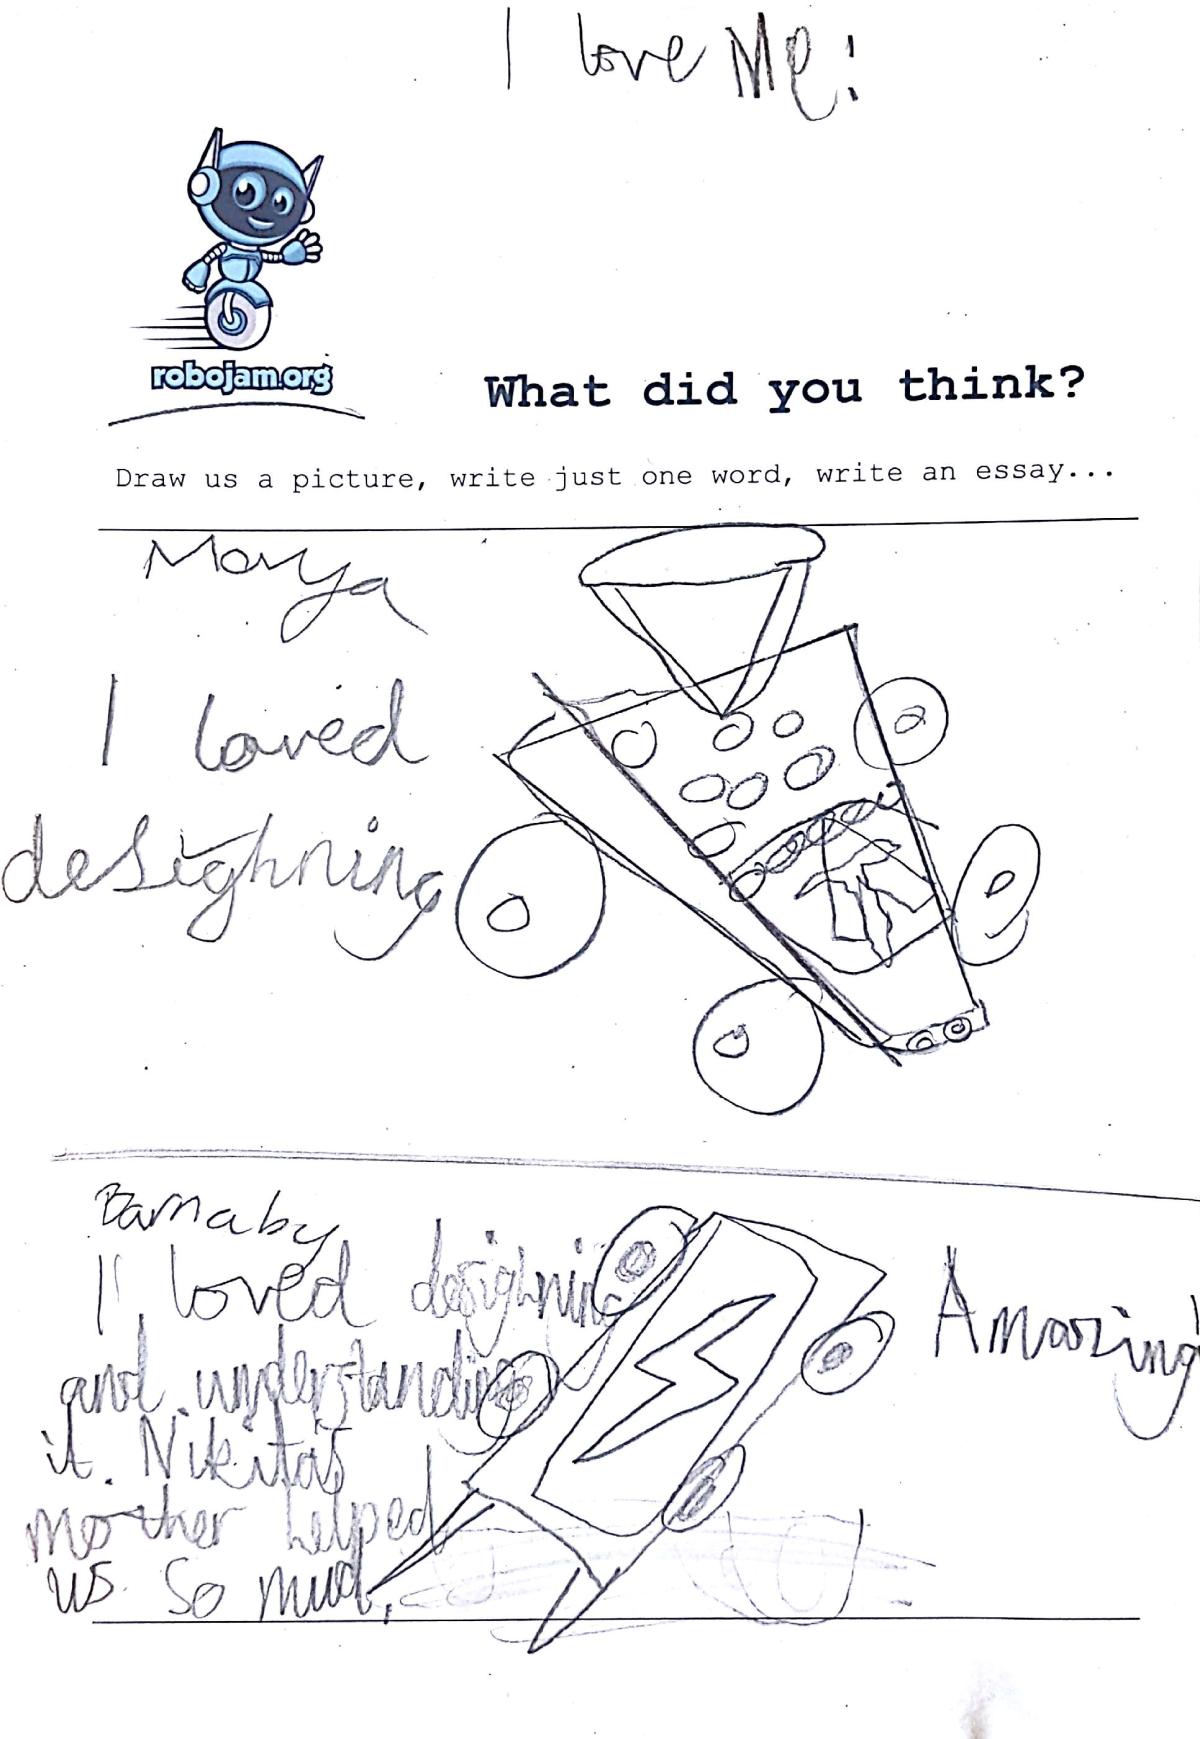 I love Me!
robojam.org
What did you think?
Draw us a picture, write just one word, write an essay...
Marya
I loved
desighning
Barnaby
I loved desighning
and understanding
it. Nikitas
mother helped
us so much.
Amazing!